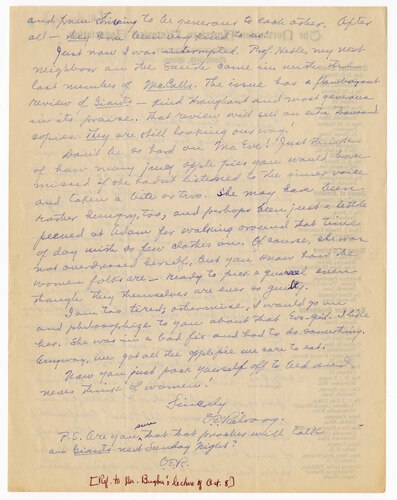 and pawn thriving to be generous to each other. After
all –
Just now I was interrupted. Prof. my next
neighbor on the South came in with the
last number of McCalls. The issue has a flamboyant
review of Giants – kind throughout and most generous
in its praise. That review will sell an extra thousand
copies. They are still looking our way!
Don't be so hard on Ma Eve! Just think
of how many juicy apple pies you would have
missed if she hadn't listened to the inner voice
and taken a bite or two. She may have been
rather hungry, too, and perhaps been just a little
peeved at Adam for walking around that time
of day with so few clothes on. Of course, she was
not overdressed herself, but you know how the
women folks are – ready to pick a quarrel even
though they themselves are ever so guilty.
I am too tired; otherwise, I would go on
and philosophize to you about that Eve-girl. I like
her. She was in a bad fix and had to do something.
Anyway, we got all the applepie we care to eat.
Now you just pack yourself off to bed and
never think of women!
Sincerely
O.E. Rølvaag.
P.S. Are you sure that that preacher will talk
on Giants next Sunday Night?
OER.
[Ref. to Mr. Lecture of Oct. 8]